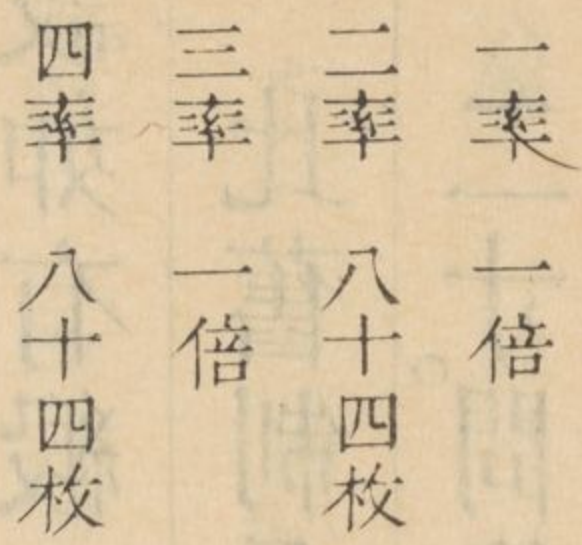 一率　一倍
二率　八十四枚
三率　一倍
四率　八十四枚